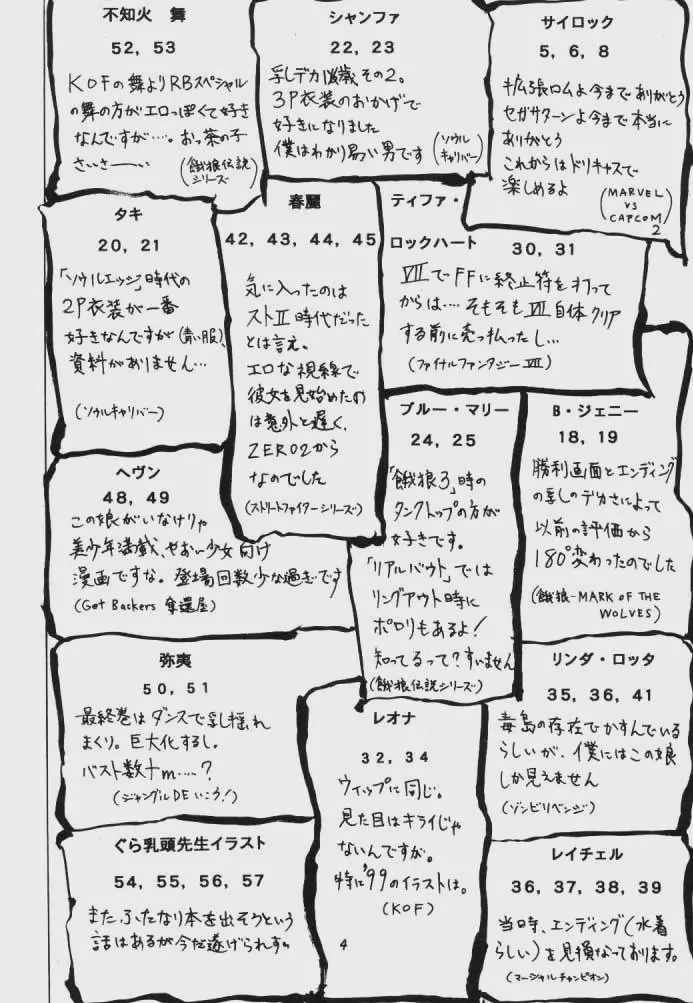 不知火 舞
52, 53
KOFの舞よりRBスペシャル
の舞の方がエロっぽくて好き
なんですが……。お茶の子
さいさーーい
(餓狼伝説
シリーズ)
シャンファ
22, 23
乳デカ 歳 その2。
3P衣装のおかげで
好きになりました
僕はわかり易い男です
(ソウル
キャリバー)
サイロック
5, 6, 8
拡張ロムよ今までありがとう
セガサターンよ今まで本当に
ありがとう
これからはドリキャスで
楽しめるよ
(MARVEL
VS
CAPCOM
2
タキ
20, 21
「ソウルエッジ」時代の
2P衣装が一番
好きなんですが(青い服)、
資料がありません…
(ソウルキャリバー)
春麗
42, 43, 44, 45
気に入ったのは
ストⅡ時代だった
とは言え。
エロな視線で
彼女を見始めたの
は意外と遅く、
ZERO2から
なのでした
(ストリートファイターシリーズ)
ティファ・
ロックハート
30, 31
ⅦでFFに終止符を打って
からは…. そもそもⅦ自体クリア
する前に売っ払ったし…
(ファイナルファンタジーⅦ)
ブルー・マリー
24, 25
「餓狼3」時の
タンクトップの方が
好きです。
「リアルバウト」では
リングアウト時に
ポロリもあるよ!
知ってるって?すいません
(餓狼伝説シリーズ)
B・ジェニー
18, 19
勝利画面とエンディング
の乳のデカさによって
以前の評価から
180°変わったのでした
(餓狼-MARK OF THE
WOLVES)
ヘヴン
48, 49
この娘がいなけりゃ
美少年満載、やおい少女向け
漫画ですな。登場回数少な過ぎです
(Get Backers 奪還屋)
弥夷
50, 51
最終巻はダンスで乳揺れ
まくり。巨大化するし。
バスト数十m……?
(ジャングルDEいこう!)
レオナ
32, 34
ウィップに同じ。
見た目はキライじゃ
ないんですが。
特に'99のイラストは。
(KOF)
リンダ・ロッタ
35, 36, 41
毒島の存在でかすんでいる
らしいが、僕にはこの娘
しか見えません
(ゾンビリベンジ)
ぐら乳頭先生イラスト
54, 55, 56, 57
また、ふたなり本を出そうという
話はあるが今だ遂げられず。
レイチェル
36, 37, 38, 39
当時、エンディング(水着
らしい)を見損なっております。
(マーシャルチャンピオン)
4